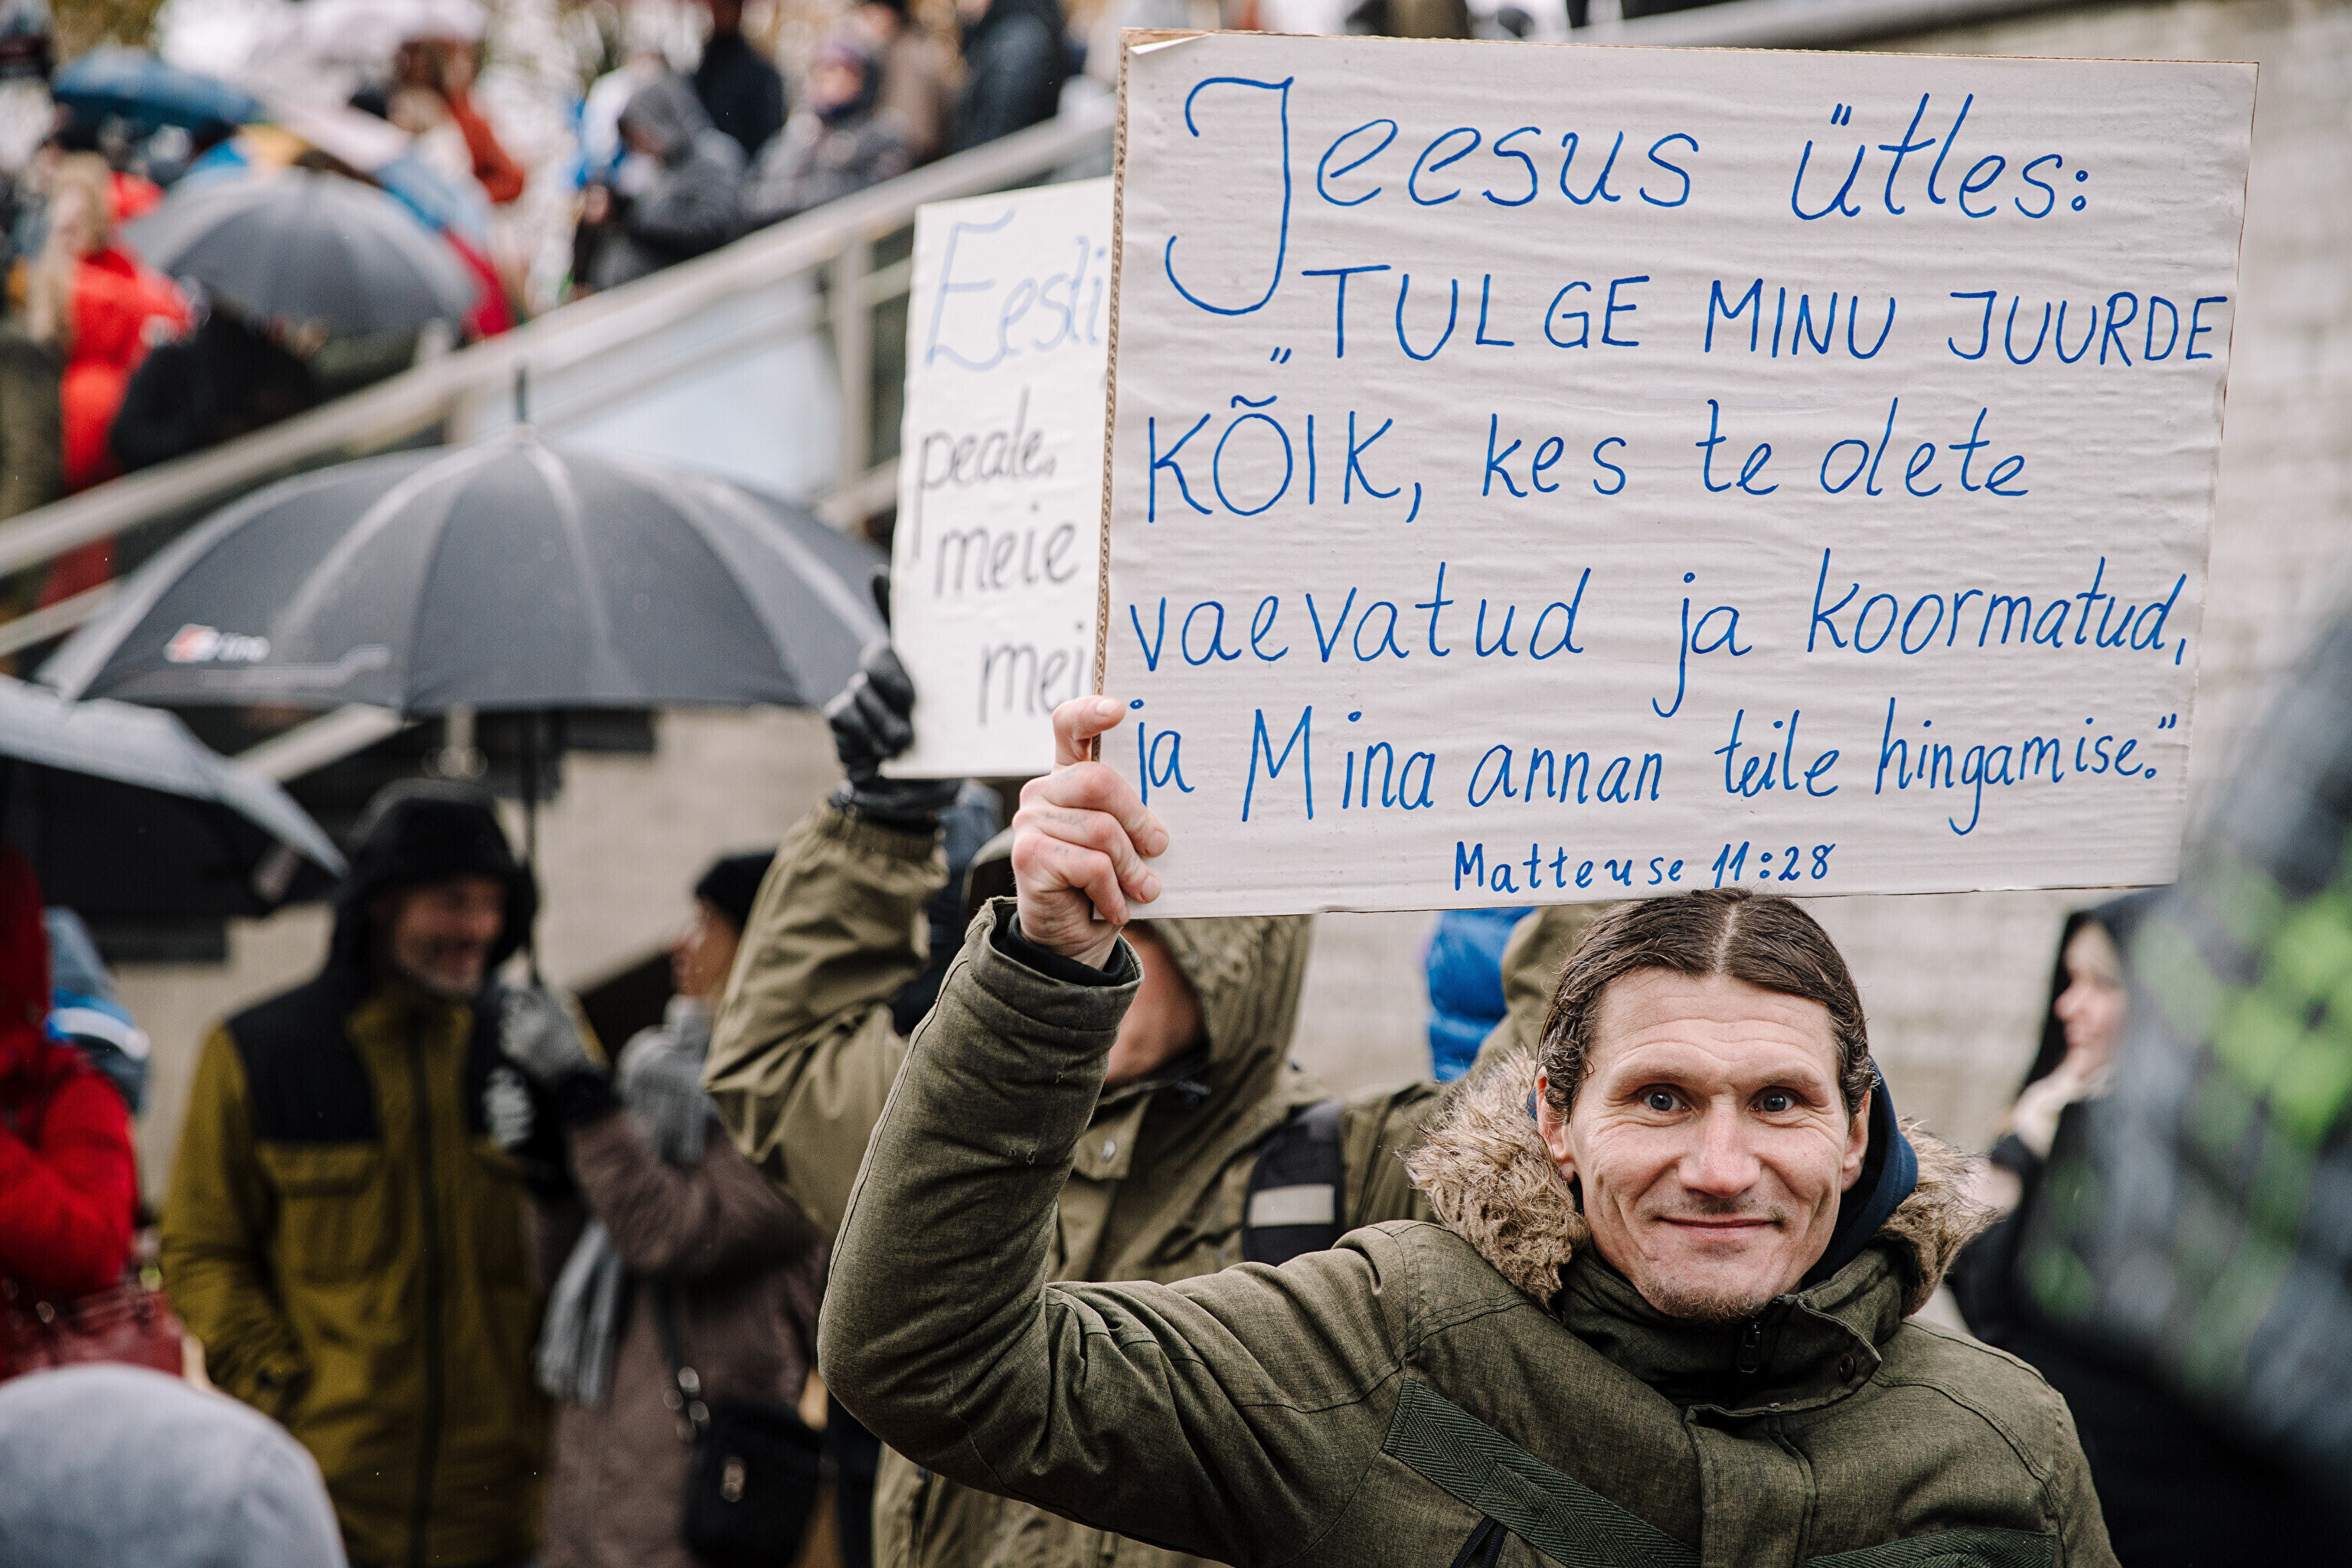 Jeesus ütles:
„TULGE MINU JUURDE
KÕIK, kes te olete
vaevatud ja koormatud,
ja Mina annan teile hingamise."
Matteuse 11:28
Eesti
peale,
meie
mei